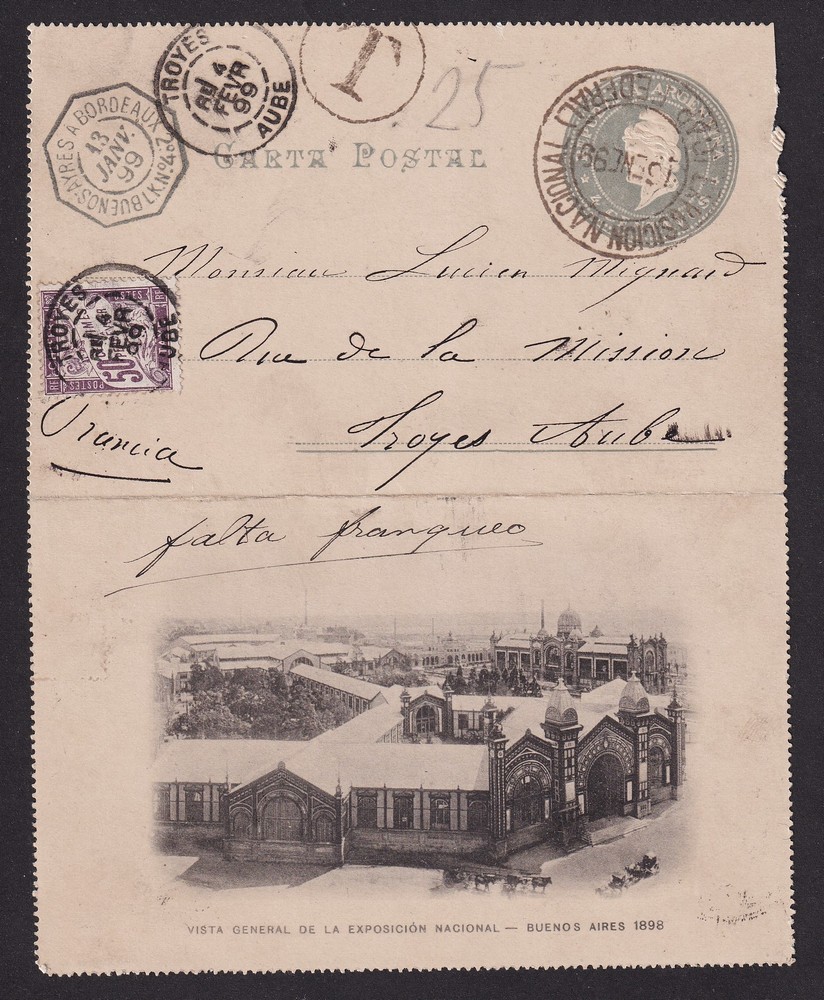 TROYES
4
FEVR
99
AUBE
T
25
BUENOS-AYRES A BORDEAUX
13
JANV.
99
LK Nº 4
CARTA POSTAL
EXPOSICION NACIONAL
Monsieur Lucien Mignard
Rue de la Mission
Troyes Aube
TROYES
4
FEVR
99
AUBE
POSTES
50
POSTES
Francia
falta franqueo
VISTA GENERAL DE LA EXPOSICIÓN NACIONAL — BUENOS AIRES 1898